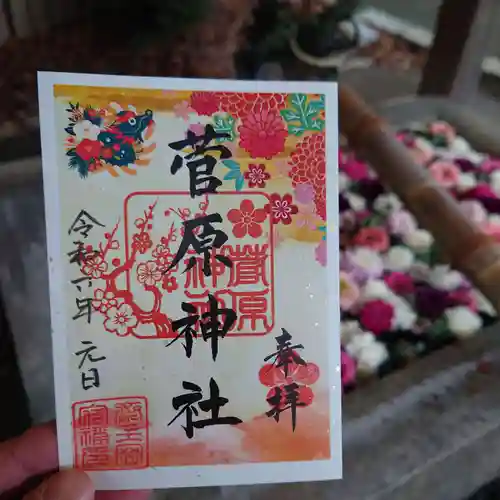 奉拝
菅原神社
菅原
神社
令和 年 元日